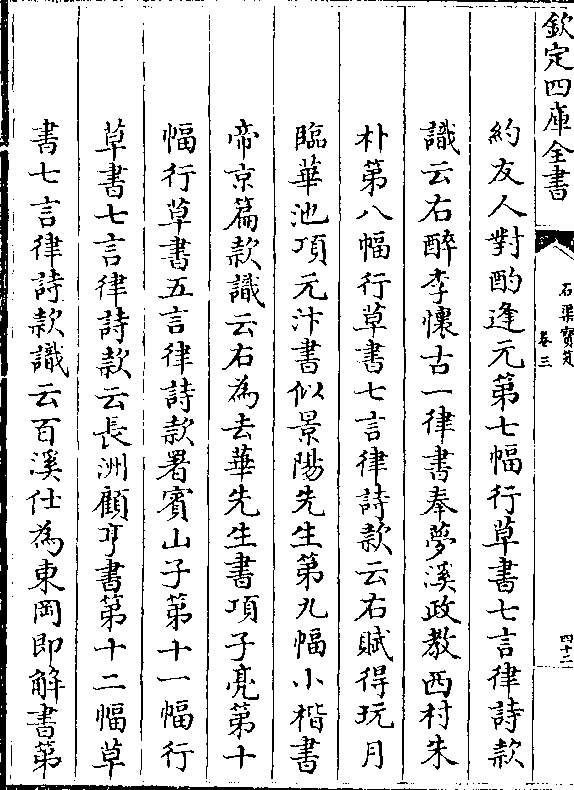 欽定四庫全書
石渠寶笈
卷三
四十二
約友人對酌逢元第七幅行草書七言律詩款
識云右醉李懷古一律書奉夢溪政教西村朱
朴第八幅行草書七言律詩款云右賦得玩月
臨華池項元汴書似景陽先生第九幅小楷書
帝京篇款識云右為去華先生書項子亮第十
幅行草書五言律詩款署賓山子第十一幅行
草書七言律詩款云長洲顧亨書第十二幅草
書七言律詩款識云百溪仕為東岡即解書第